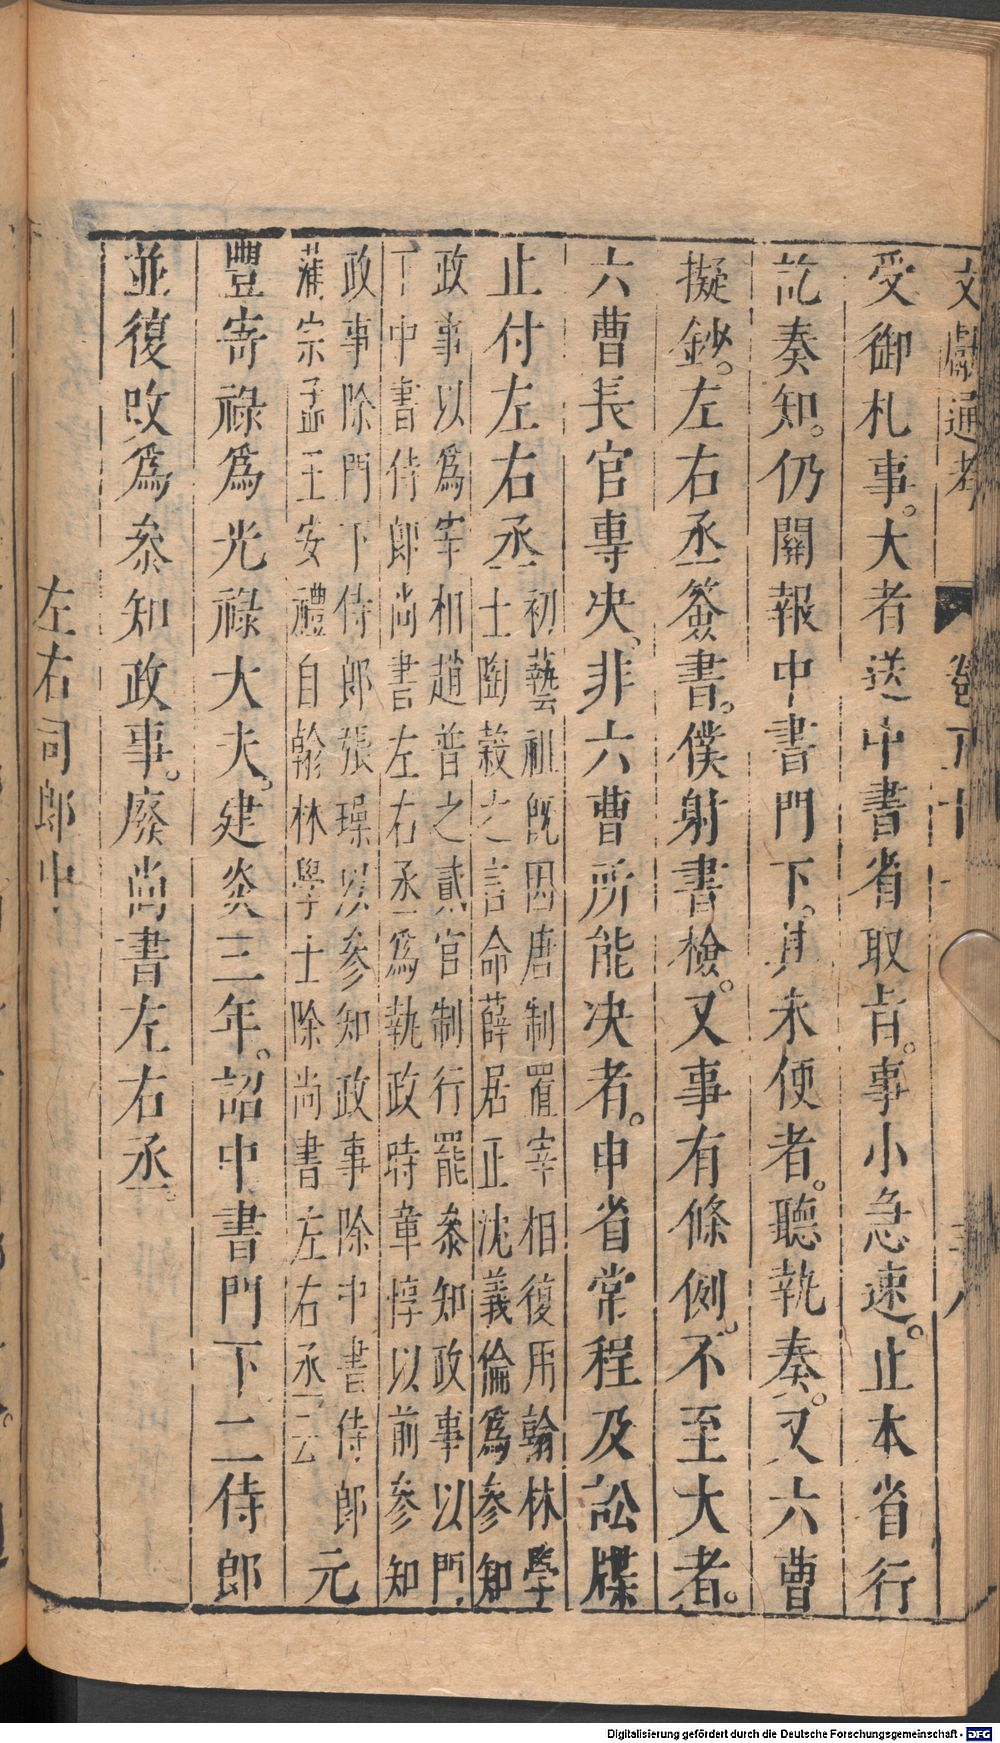 文獻通考 卷五十一
受御札事。大者送中書省取旨。事小急速。止本省行
訖奏知。仍關報中書門下。其未便者。聽執奏。又六曹
擬鈔。左右丞簽書。僕射書檢。又事有條例。不至大者。
六曹長官專决。非六曹所能决者。申省常程及訟牒
止付左右丞
初藝祖旣因唐制置宰相復用翰林學
士陶穀之言命薛居正沈義倫爲參知
政事以爲宰相趙普之貳官制行罷叅知政事以門
下中書侍郎尚書左右丞爲執政時章惇以前參知
政事除門下侍郎張璪以參知政事除中書侍郎
蒲宗孟王安禮自翰林學士除尚書左右丞云
元
豐寄祿爲光祿大夫。建炎三年。詔中書門下二侍郎
並復改爲叅知政事。廢尚書左右丞。
左右司郎中
Digitalisierung gefördert durch die Deutsche Forschungsgemeinschaft - DFG